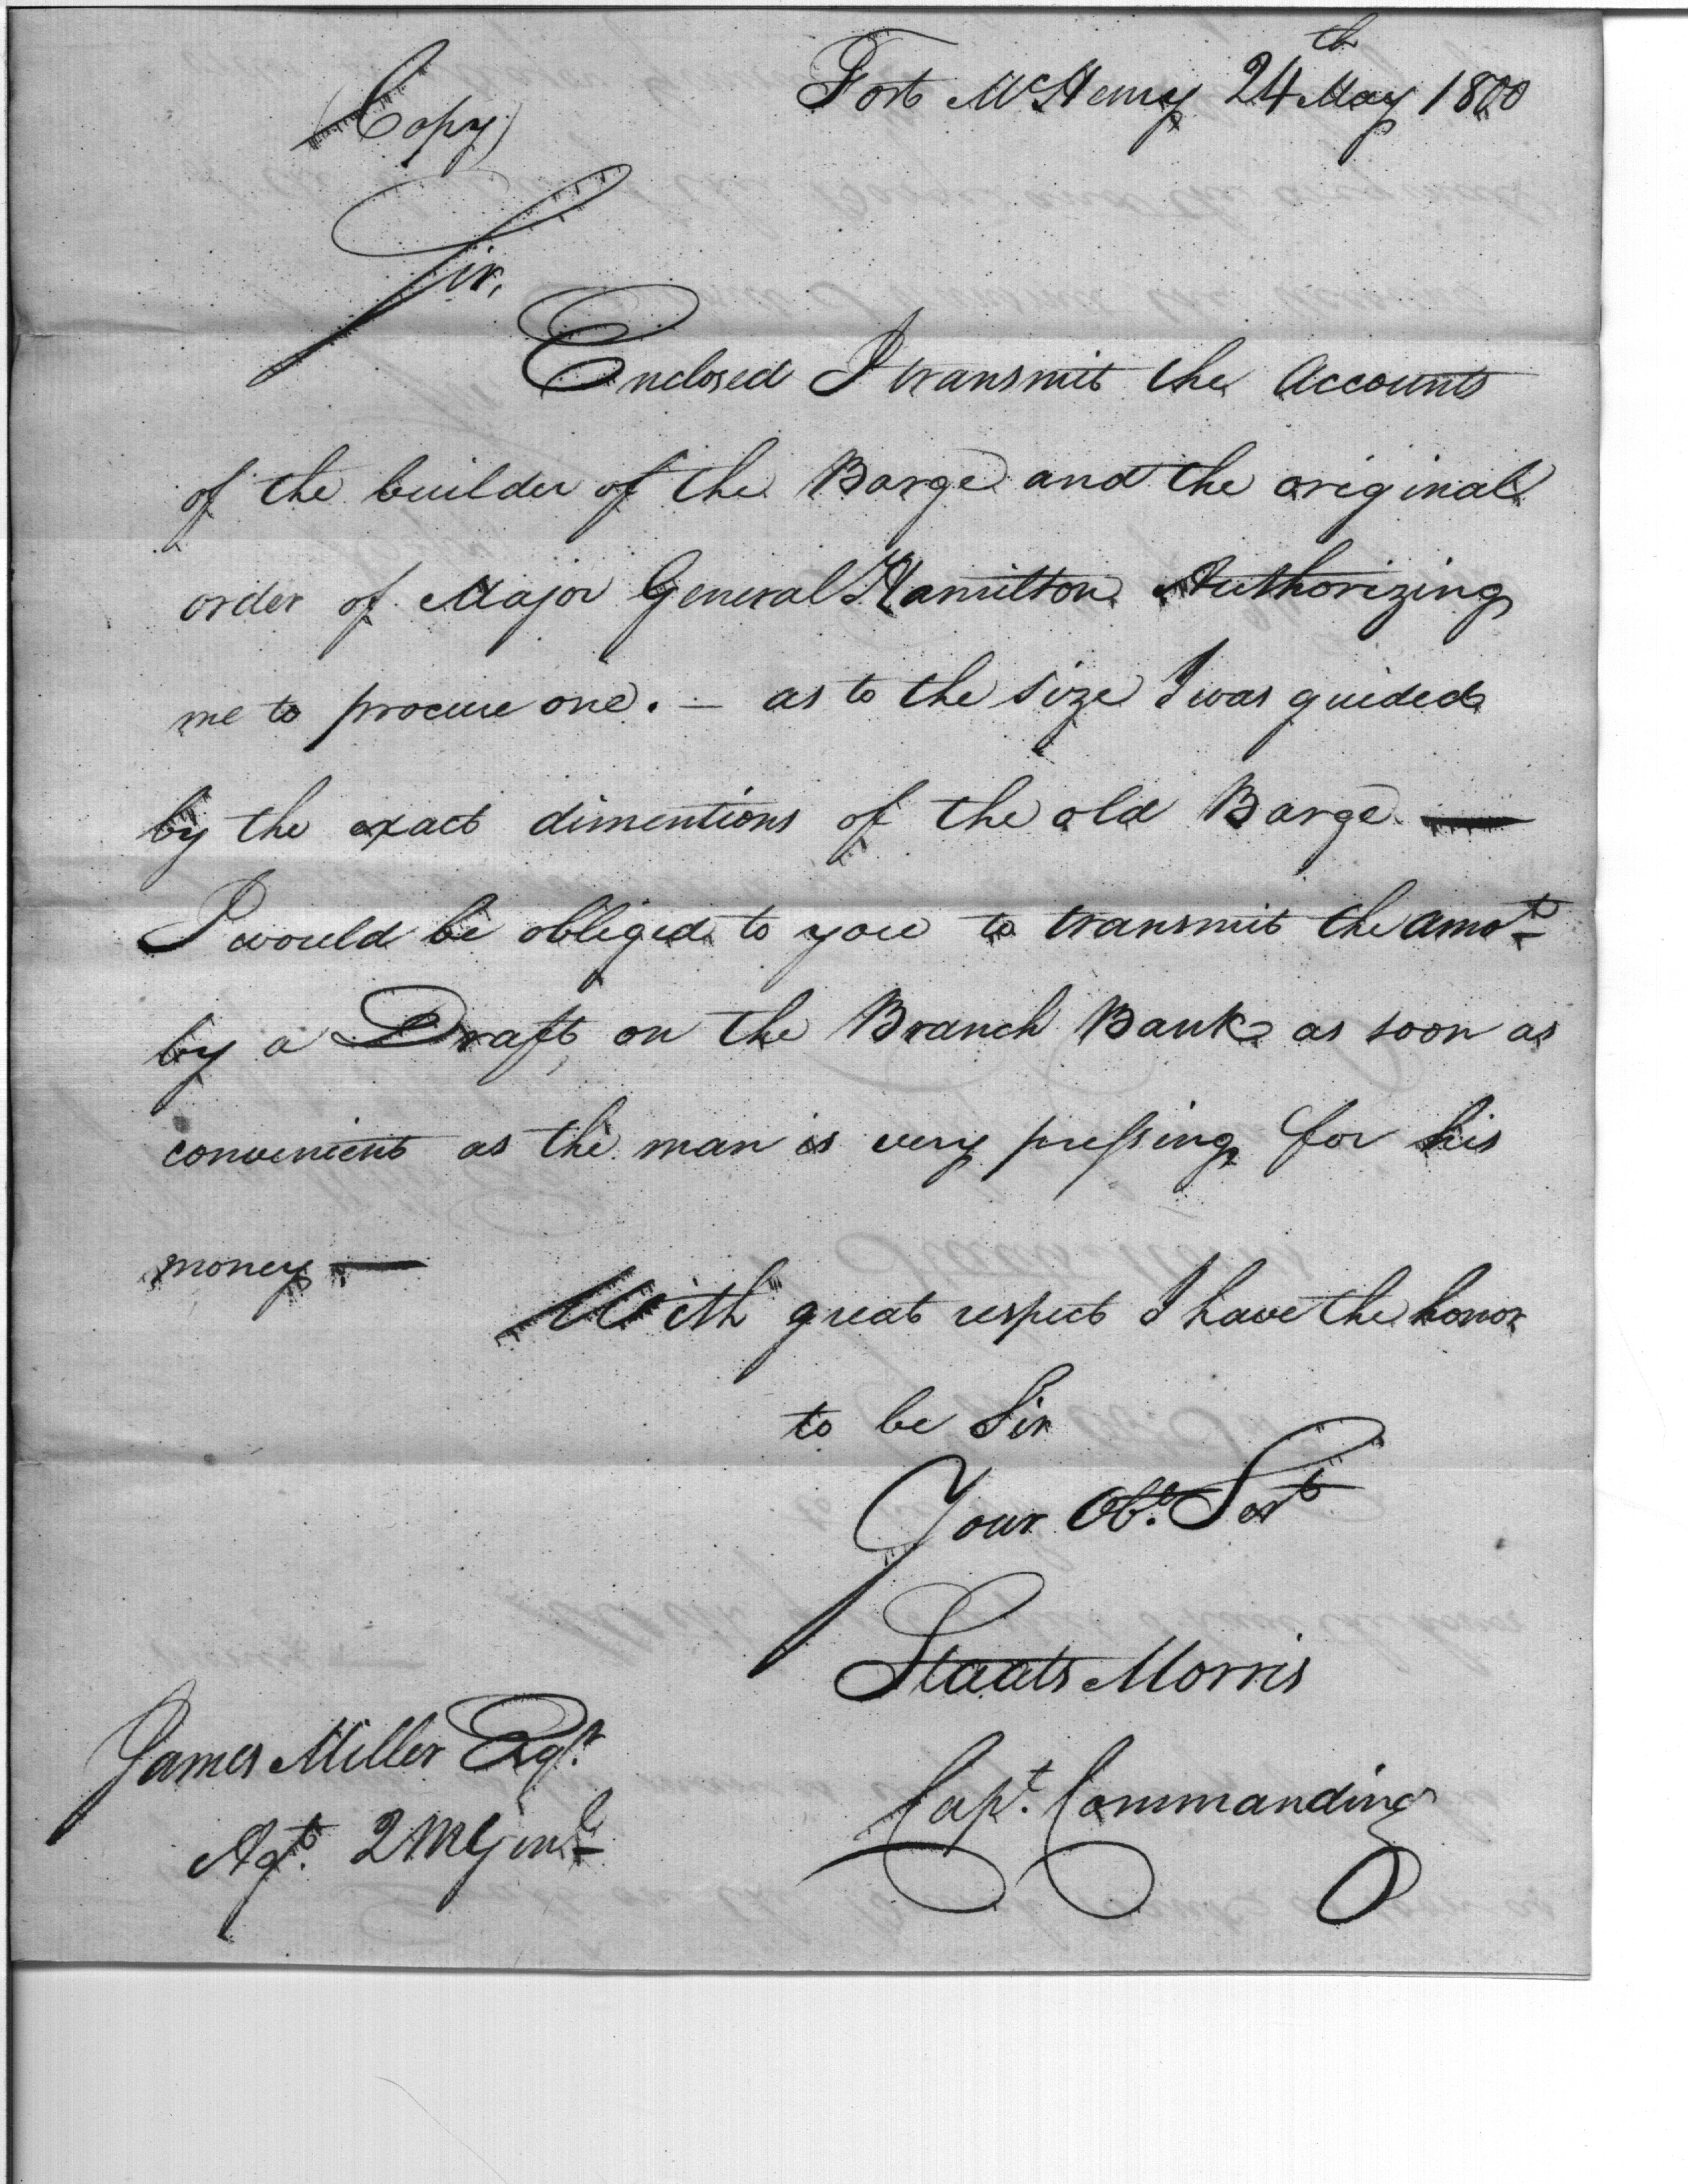 (Copy)
Fort McHenry 24th May 1800
Sir,
Enclosed I transmit the Accounts
of the builder of the Barge and the original
order of Major General Hamilton Authorizing
me to procure one. — as to the size I was guided
by the exact dimentions of the old Barge —
I would be obliged to you to transmit the amot
by a Draft, on the Branch Bank as soon as
convenient as the man is very pressing for his
money —
With great respect I have the honor
to be Sir
Your Obt. Sert
Staats Morris
Capt. Commanding
James Miller Esqr.
Agt. 2 M Genl